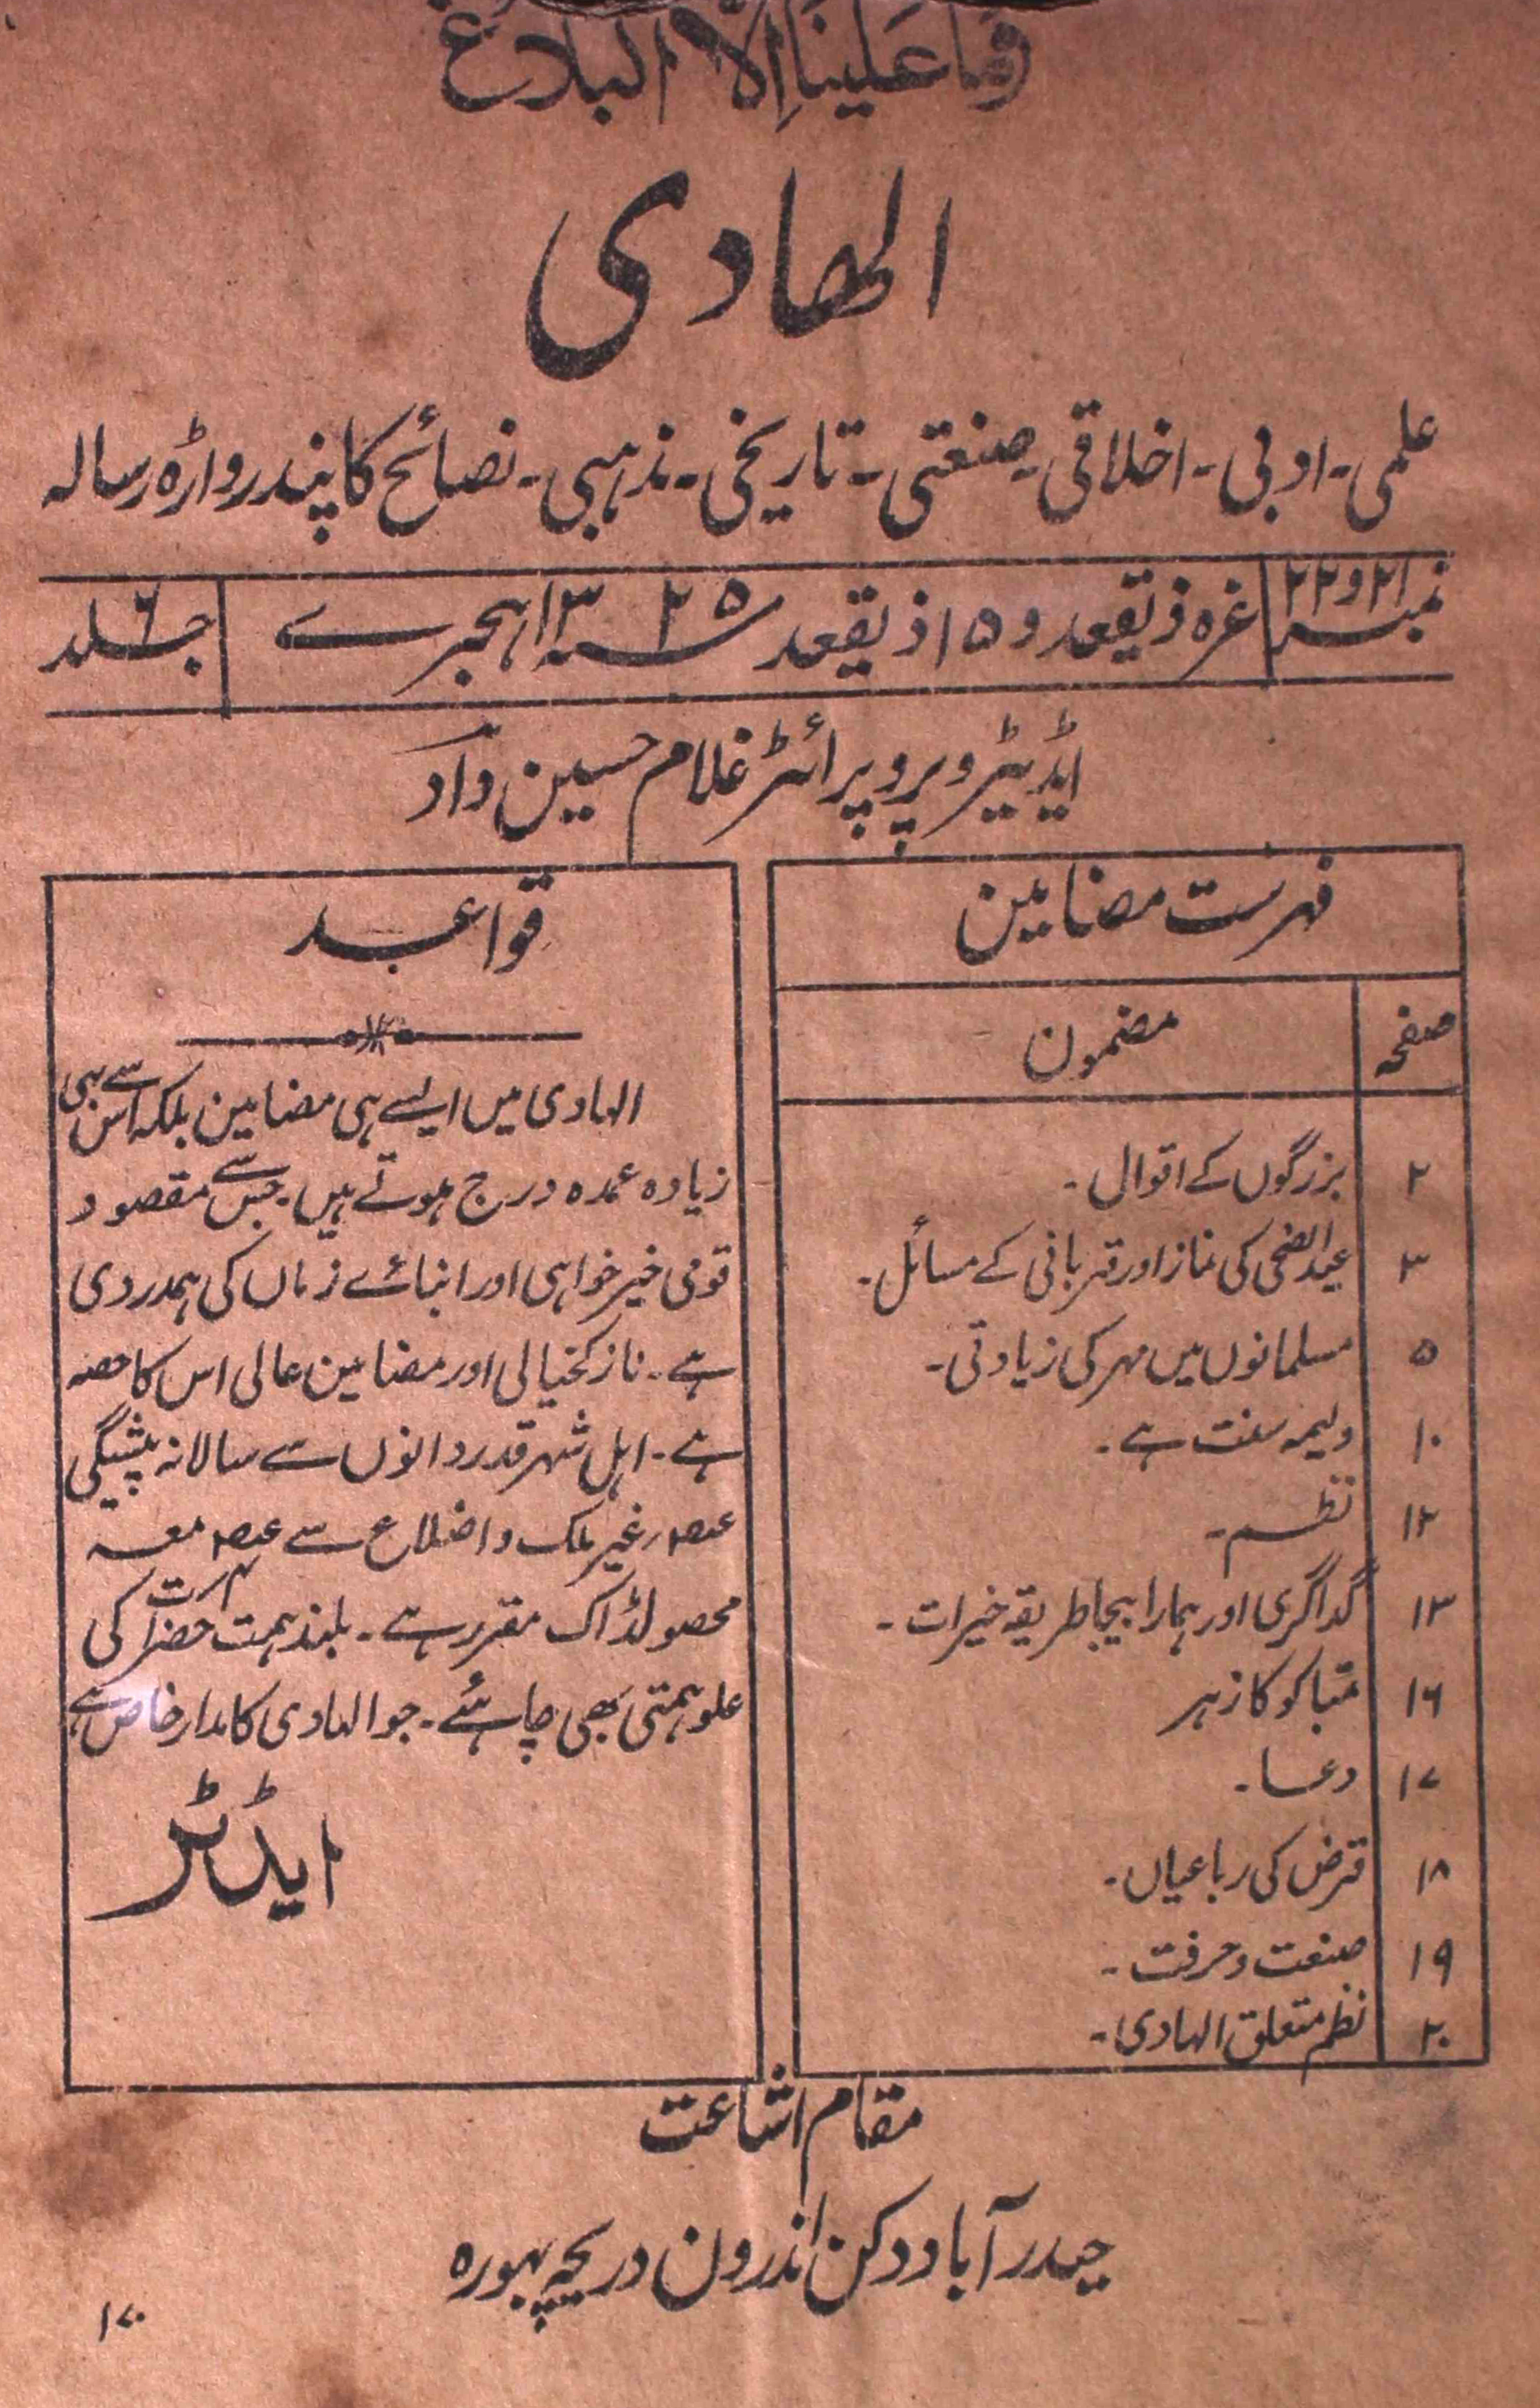 وَمَا عَلَینَا اِلَّا البَلَاغ
الھادی
علمی - ادبی - اخلاقی - صنعتی - تاریخی - مذہبی - نصائح کا پندرواڑہ رسالہ
نمبر ۲۱ و ۲۲ غرہ ذیقعد و ۱۵ ذیقعد سنہ ۱۳۲۵ ہجرے جلد ۶
ایڈیٹر و پروپرائٹر غلام حسین داد
فہرست مضامین
صفحہ مضمون
۲ بزرگوں کے اقوال -
۳ عیدالضحی کی نماز اور قربانی کے مسائل -
۵ مسلمانوں میں مہر کی زیادتی -
۱۰ ولیمہ سنت ہے -
۱۲ نظم -
۱۳ گداگری اور ہمارا بیجا طریقہ خیرات -
۱۶ تمباکو کا زہر
۱۷ دعا -
۱۸ قرض کی رباعیاں -
۱۹ صنعت و حرفت -
۲۰ نظم متعلق الہادی -
قواعد
الہادی میں ایسے ہی مضامین بلکہ اس سے بہی
زیادہ عمدہ درج ہوتے ہیں - جس سے مقصود
قومی خیر خواہی اور ابنائے زماں کی ہمدردی
ہے - نازکخیالی اور مضامین عالی اس کا حصہ
ہے - اہل شہر قدردانوں سے سالانہ پیشگی
غیر ملک و اضلاع سے معہ
محصولڈاک مقرر ہے - بلند ہمت حضرات کی
علو ہمتی بھی چاہئے - جو الہادی کا مدار خاص ہے
ایڈٹر
مقام اشاعت
حیدرآباد دکن اندرون دریچہ بہورہ
۱۷۰